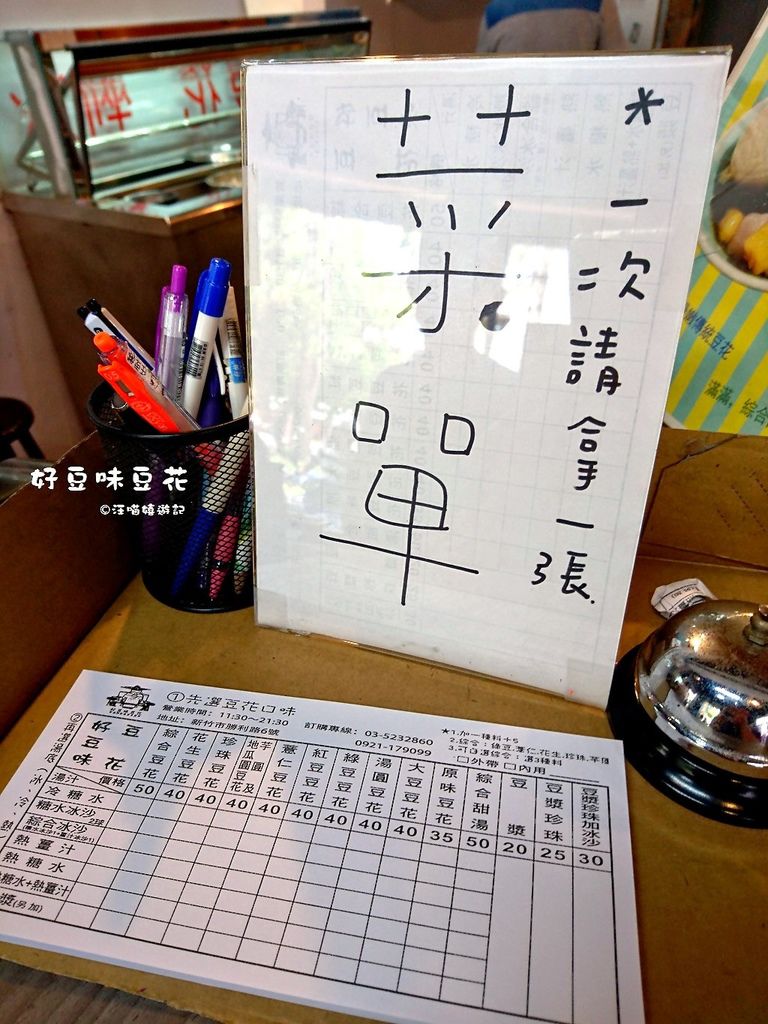 菜單
*一次請拿一張.
好豆味豆花
©汪喵嬉遊記
傳統豆花
滿滿,綜合
①先選豆花口味
營業時間：11:30～21:30
地址：新竹市勝利路6號
訂購專線：03-5232860
0921-179099
★1.加一種料+5
2.綜合：綠豆,薏仁,花生,珍珠,芋圓
3.可自選綜合：選3種料
□外帶 □內用
好豆味豆花
湯汁 價格
綜合豆花 50
花生豆花 40
珍珠豆花 40
芋圓及地瓜圓豆花 40
薏仁豆花 40
紅豆豆花 40
綠豆豆花 40
湯圓豆花 40
大豆豆花 40
原味豆花 35
綜合甜湯 50
豆漿 20
豆漿珍珠 25
豆漿珍珠加冰沙 30
冷糖水
糖水冰沙
綜合冰沙
熱薑汁
熱糖水
糖水+熱薑汁
漿(另加)